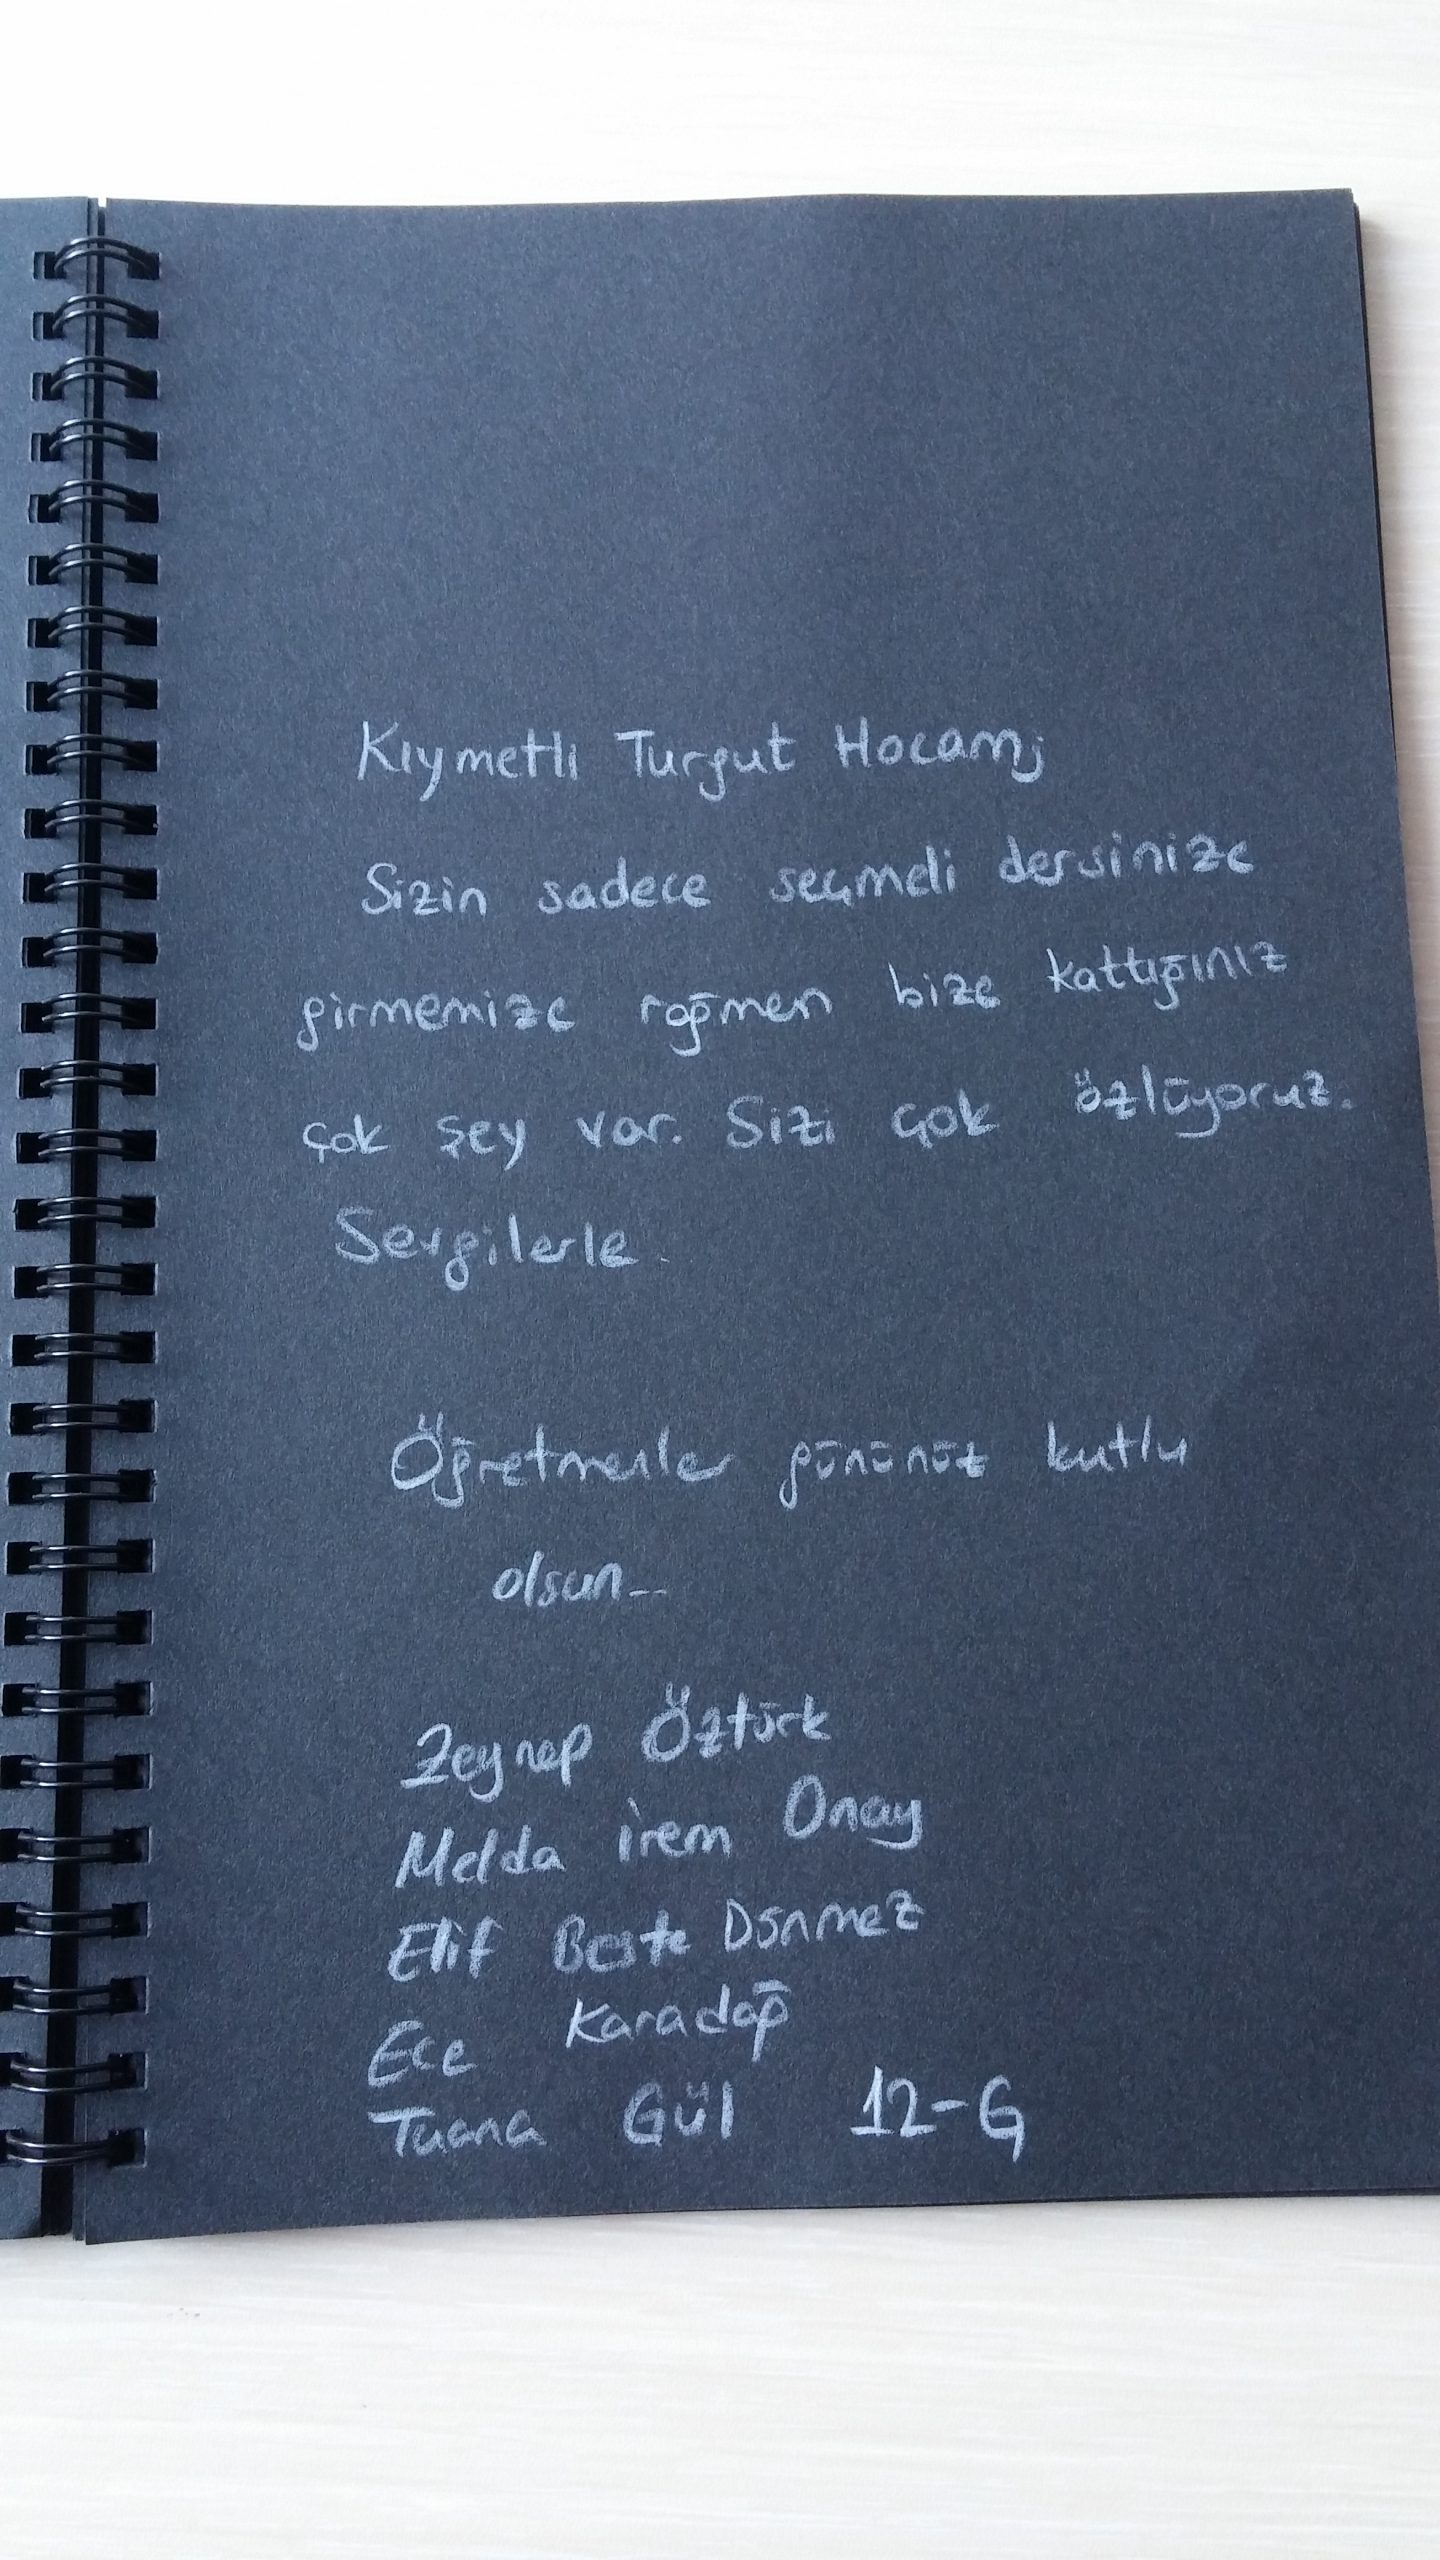 Kıymetli Turgut Hocam;
Sizin sadece seçmeli dersinize
girmemize rağmen bize kattığınız
çok şey var. Sizi çok özlüyoruz.
Sevgilerle.
Öğretmenler gününüz kutlu
olsun...
Zeynep Öztürk
Melda İrem Onay
Elif Beste Dönmez
Ece Karadağ
Tuana Gül 12-G